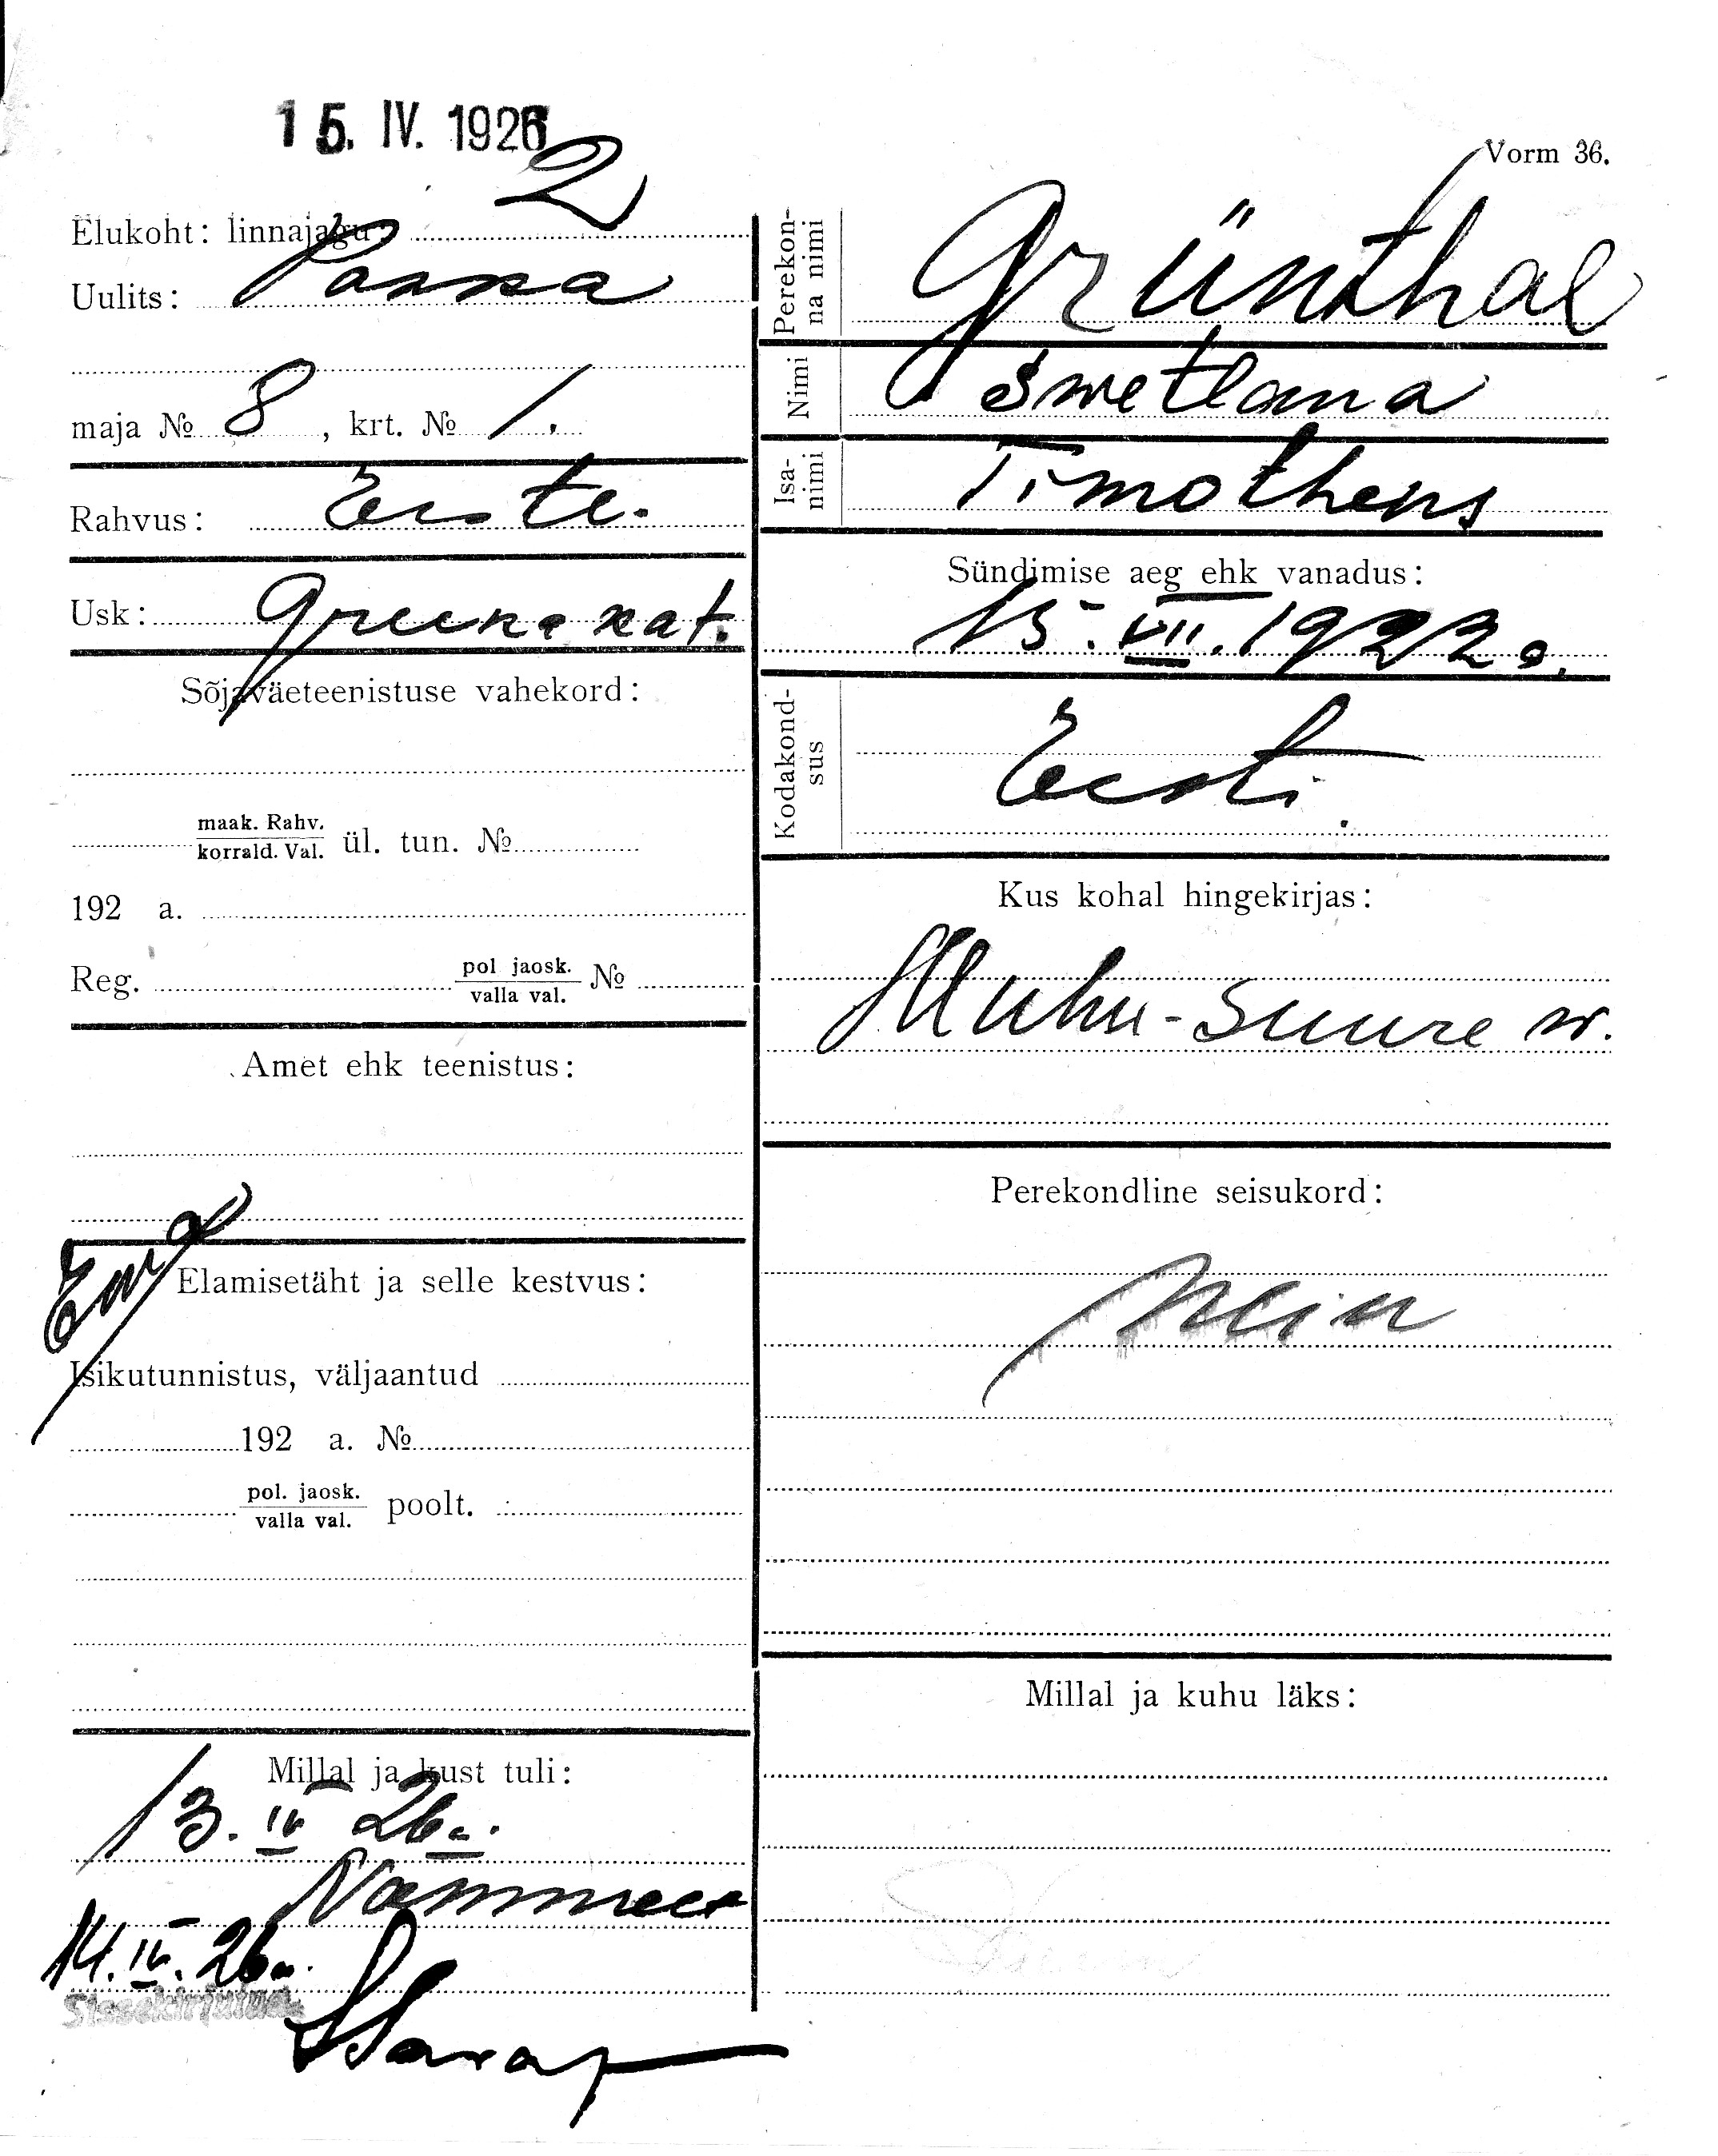 15. IV. 1926
Vorm 36.
Elukoht: linnajagu: 2
Uulits:
maja № 8, krt. № 1.
Rahvus: Eesti.
Usk: kat.
Sõjaväeteenistuse vahekord:
maak. Rahv.
korrald. Val. ül. tun. №
192 a.
Reg. pol jaosk.
valla val. №
Amet ehk teenistus:
Elamisetäht ja selle kestvus:
Isikutunnistus, väljaantud
192 a. №
pol. jaosk.
valla val. poolt.
Millal ja kust tuli:
13. IV 26 a.
Nõmmelt
14. IV. 26 a.
Sissekirjutud
Perekonna nimi Grünthal
Nimi Swetlana
Isanimi Timotheus
Sündimise aeg ehk vanadus:
15. VII. 1922 a.
Kodakondsus Eesti.
Kus kohal hingekirjas:
Muhu-Suure w.
Perekondline seisukord:
Millal ja kuhu läks: